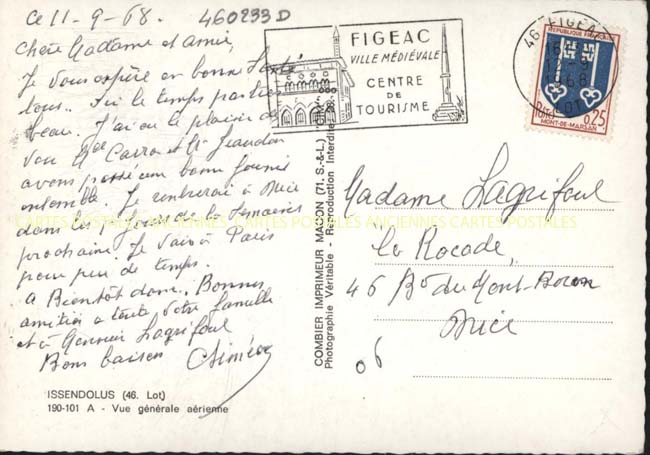 Ce 11-9-68. 460233D
Chère Madame et amie,
Je vous espère en bonne santé
tous. Ici le temps
beau. J'ai eu le plaisir de
voir Mme et Mr
avons passé une bonne journée
ensemble. Je rentrerai à Nice
dans les de la semaine
prochaine. Je vais à Paris
pour peu de temps.
A Bientôt donc. Bonnes
amitiés a toute votre famille
et à Lagrifoul
Bons baisers
ISSENDOLUS (46. Lot)
190-101 A - Vue générale aérienne
COMBIER IMPRIMEUR MACON (71. S.-&-L.) "CIM"
Photographie Véritable - Reproduction Interdite
FIGEAC
VILLE MÉDIÉVALE
CENTRE
DE
TOURISME
46 FIGEAC
12-9
1968
LOT
REPUBLIQUE FRANCAISE
0,25
MONT-DE-MARSAN
Madame Lagrifoul
La Rocade,
46 Bd du Mont-Boron
Nice
06
CARTES POSTALES ANCIENNES CARTES POSTALES ANCIENNES CARTES POSTALES